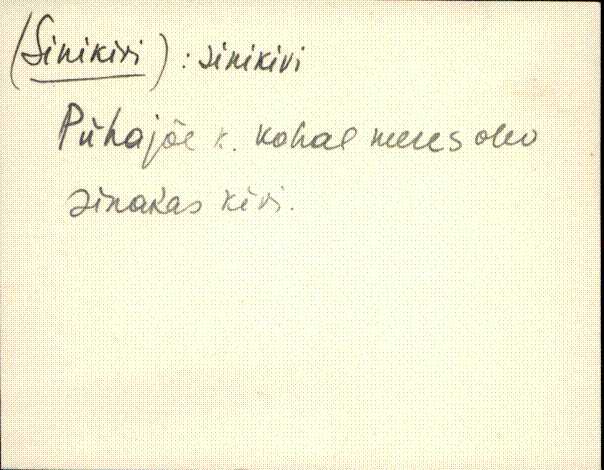 (Sinikivi) : sinikivi
Pühajõe k. kohal meres olev
sinakas kivi.